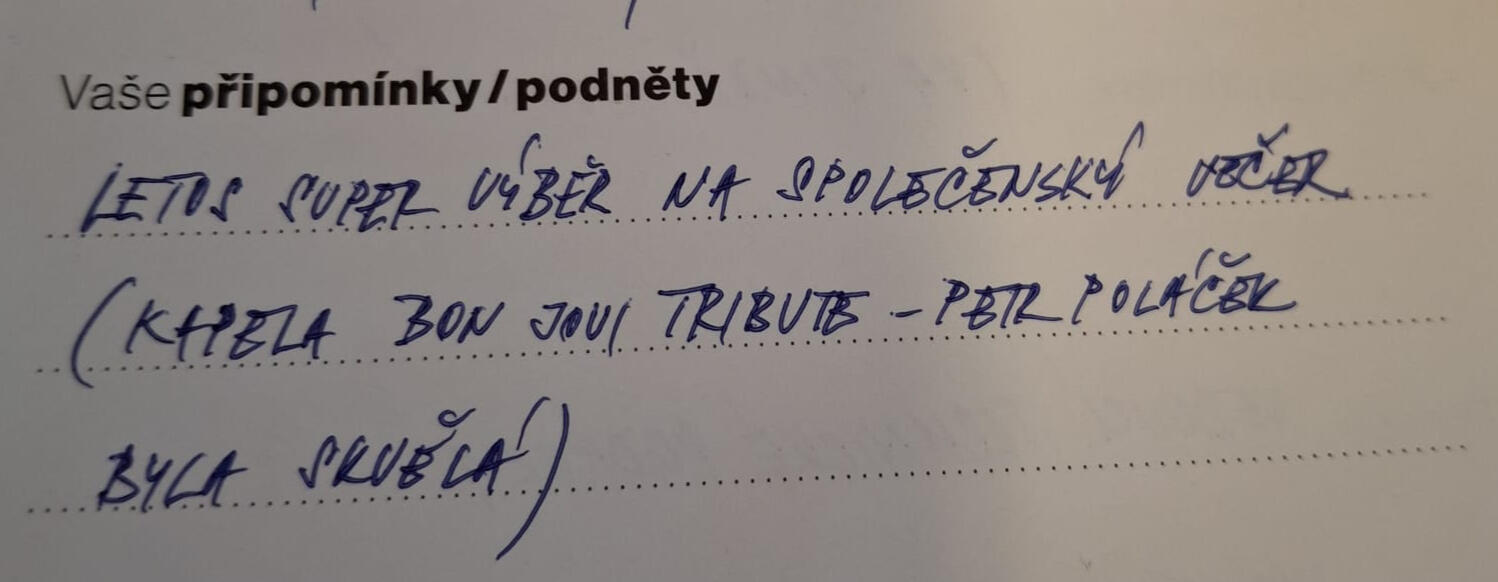 Vaše připomínky/podněty
LETOS SUPER VÝBĚR NA SPOLEČENSKÝ VEČER
(KAPELA BON JOVI TRIBUTE - PETR POLÁČEK
BYLA SKVĚLÁ)